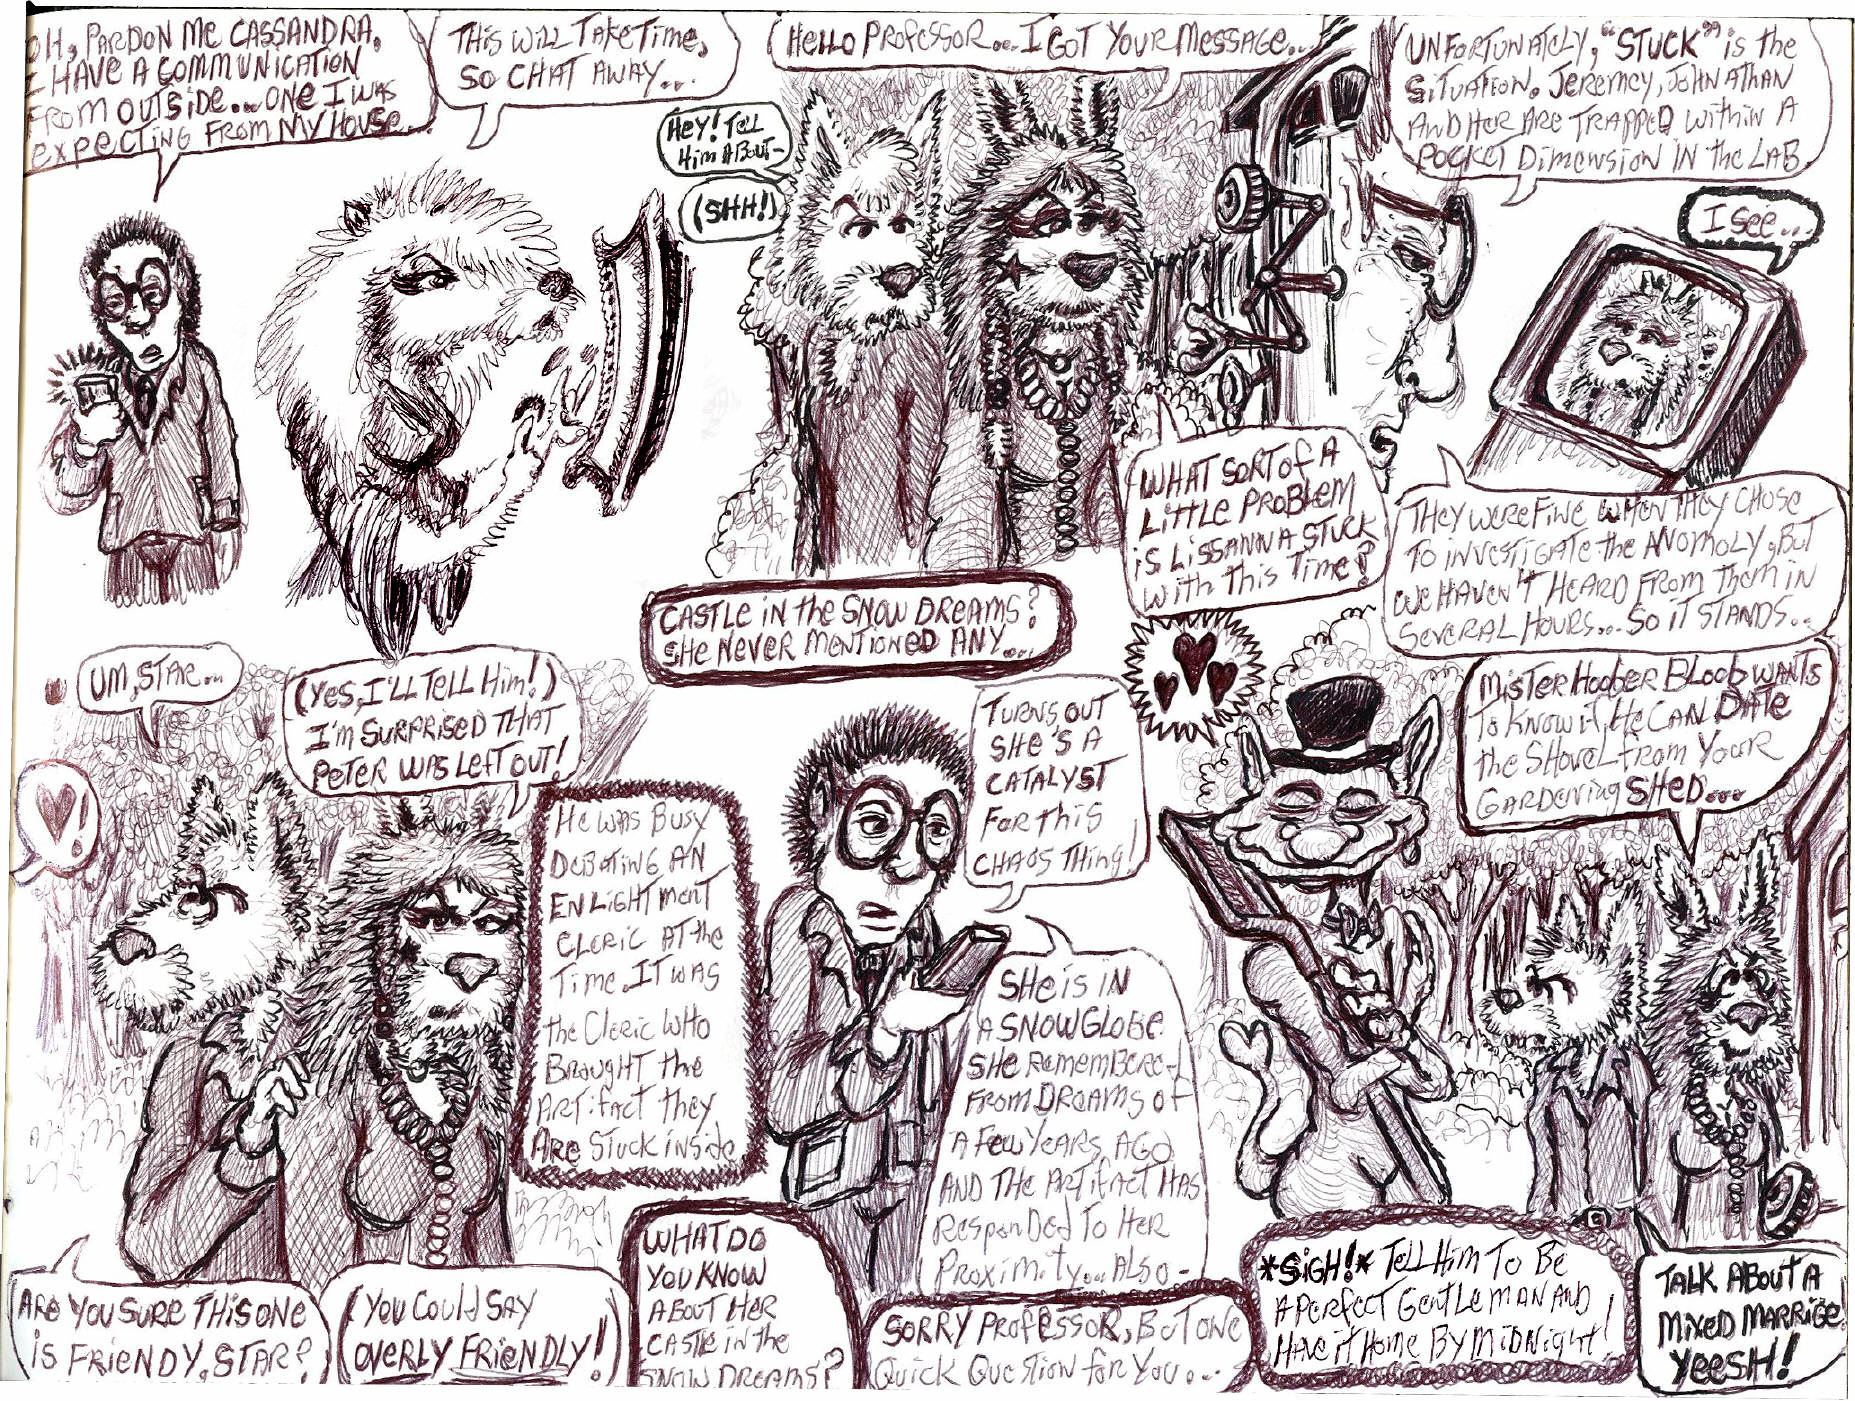 OH, PARDON ME CASSANDRA.
I HAVE A COMMUNICATION
FROM OUTSIDE... ONE I WAS
EXPECTING FROM MY HOUSE.
THIS WILL TAKE TIME,
SO CHAT AWAY...
HELLO PROFESSOR... I GOT YOUR MESSAGE...
HEY! TELL
HIM ABOUT-
(SHH!)
UNFORTUNATELY, "STUCK" IS THE
SITUATION. JEREMCY, JOHNATHAN
AND HER ARE TRAPPED WITHIN A
POCKET DIMENSION IN THE LAB.
I SEE...
WHAT SORT OF A
LITTLE PROBLEM
IS LISSANNA STUCK
WITH THIS TIME?
THEY WERE FINE WHEN THEY CHOSE
TO INVESTIGATE THE ANOMOLY, BUT
WE HAVEN'T HEARD FROM THEM IN
SEVERAL HOURS... SO IT STANDS..
CASTLE IN THE SNOW DREAMS?
SHE NEVER MENTIONED ANY...
UM, STAR...
(YES, I'LL TELL HIM!)
I'M SURPRISED THAT
PETER WAS LEFT OUT!
!
HE WAS BUSY
DEBATING AN
ENLIGHTMENT
CLERIC AT THE
TIME. IT WAS
THE CLERIC WHO
BROUGHT THE
ARTIFACT THEY
ARE STUCK INSIDE
TURNS OUT
SHE'S A
CATALYST
FOR THIS
CHAOS THING!
SHE IS IN
A SNOWGLOBE
SHE REMEMBERED
FROM DREAMS OF
A FEW YEARS AGO
AND THE ARTIFACT HAS
RESPONDED TO HER
PROXIMITY... ALSO-
MISTER HOOBER BLOOB WANTS
TO KNOW IF HE CAN DATE
THE SHOVEL FROM YOUR
GARDENING SHED...
ARE YOU SURE THIS ONE
IS FRIENDY, STAR?
(YOU COULD SAY
OVERLY FRIENDLY!)
WHAT DO
YOU KNOW
ABOUT HER
CASTLE IN THE
SNOW DREAMS?
SORRY PROFESSOR, BUT ONE
QUICK QUESTION FOR YOU...
*SIGH!* TELL HIM TO BE
A PERFECT GENTLEMAN AND
HAVE IT HOME BY MIDNIGHT!
TALK ABOUT A
MIXED MARRIGE.
YEESH!